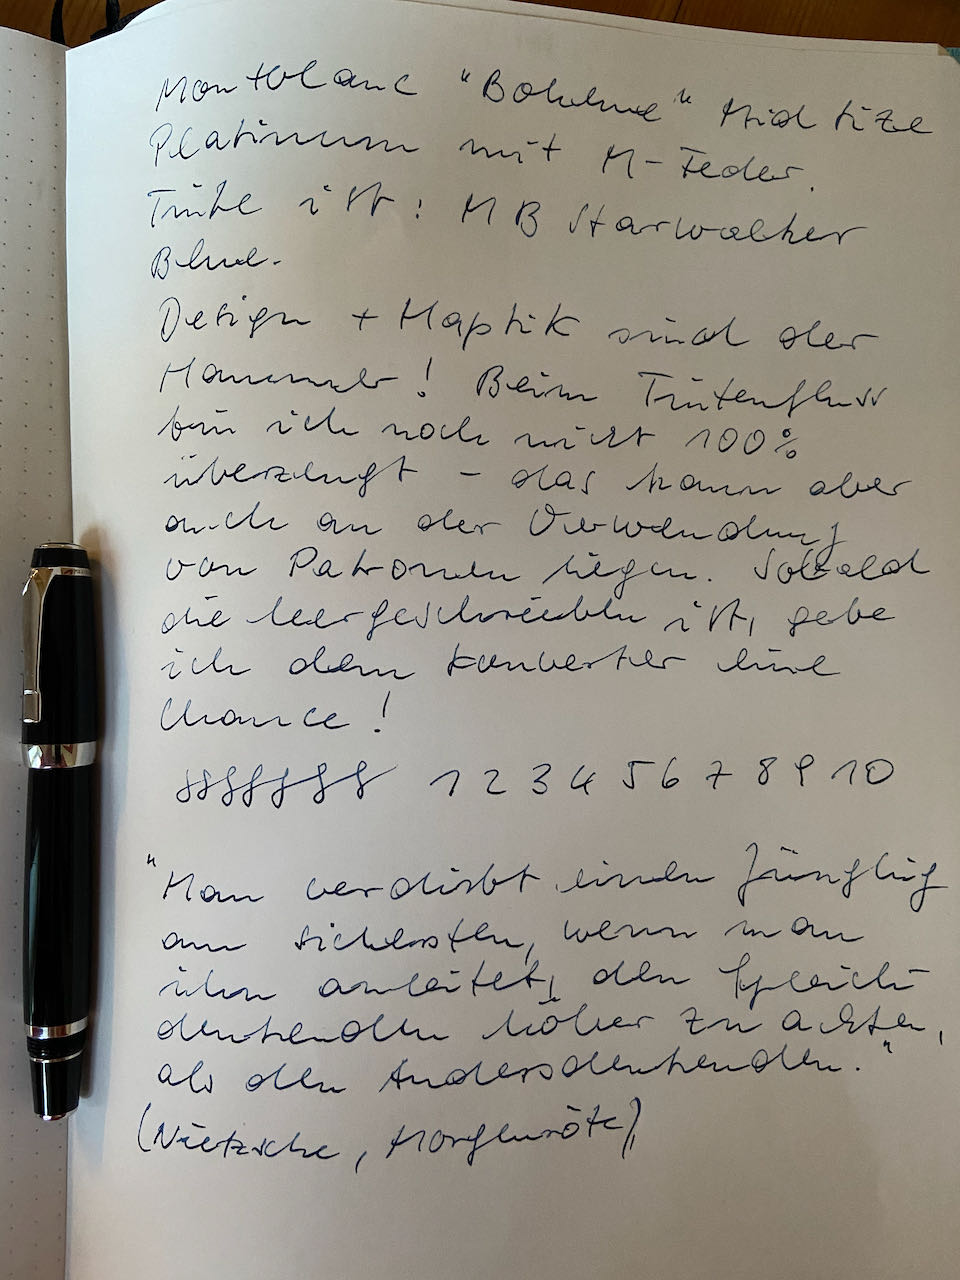 Montblanc "Boheme" Midsize
Platinum mit M-Feder.
Tinte ist: MB Starwalker
Blue.
Design + Haptik sind der
Hammer! Beim Tintenfluss
bin ich noch nicht 100%
überzeugt - das kann aber
auch an der Verwendung
von Patronen liegen. Sobald
die leergeschrieben ist, gebe
ich dem Konverter eine
Chance!
1 2 3 4 5 6 7 8 9 10
"Man verdirbt einen Jüngling
am sichersten, wenn man
ihn anleitet, den Gleich-
denkenden höher zu achten,
als den Andersdenkenden."
(Nietzsche, Morgenröte)